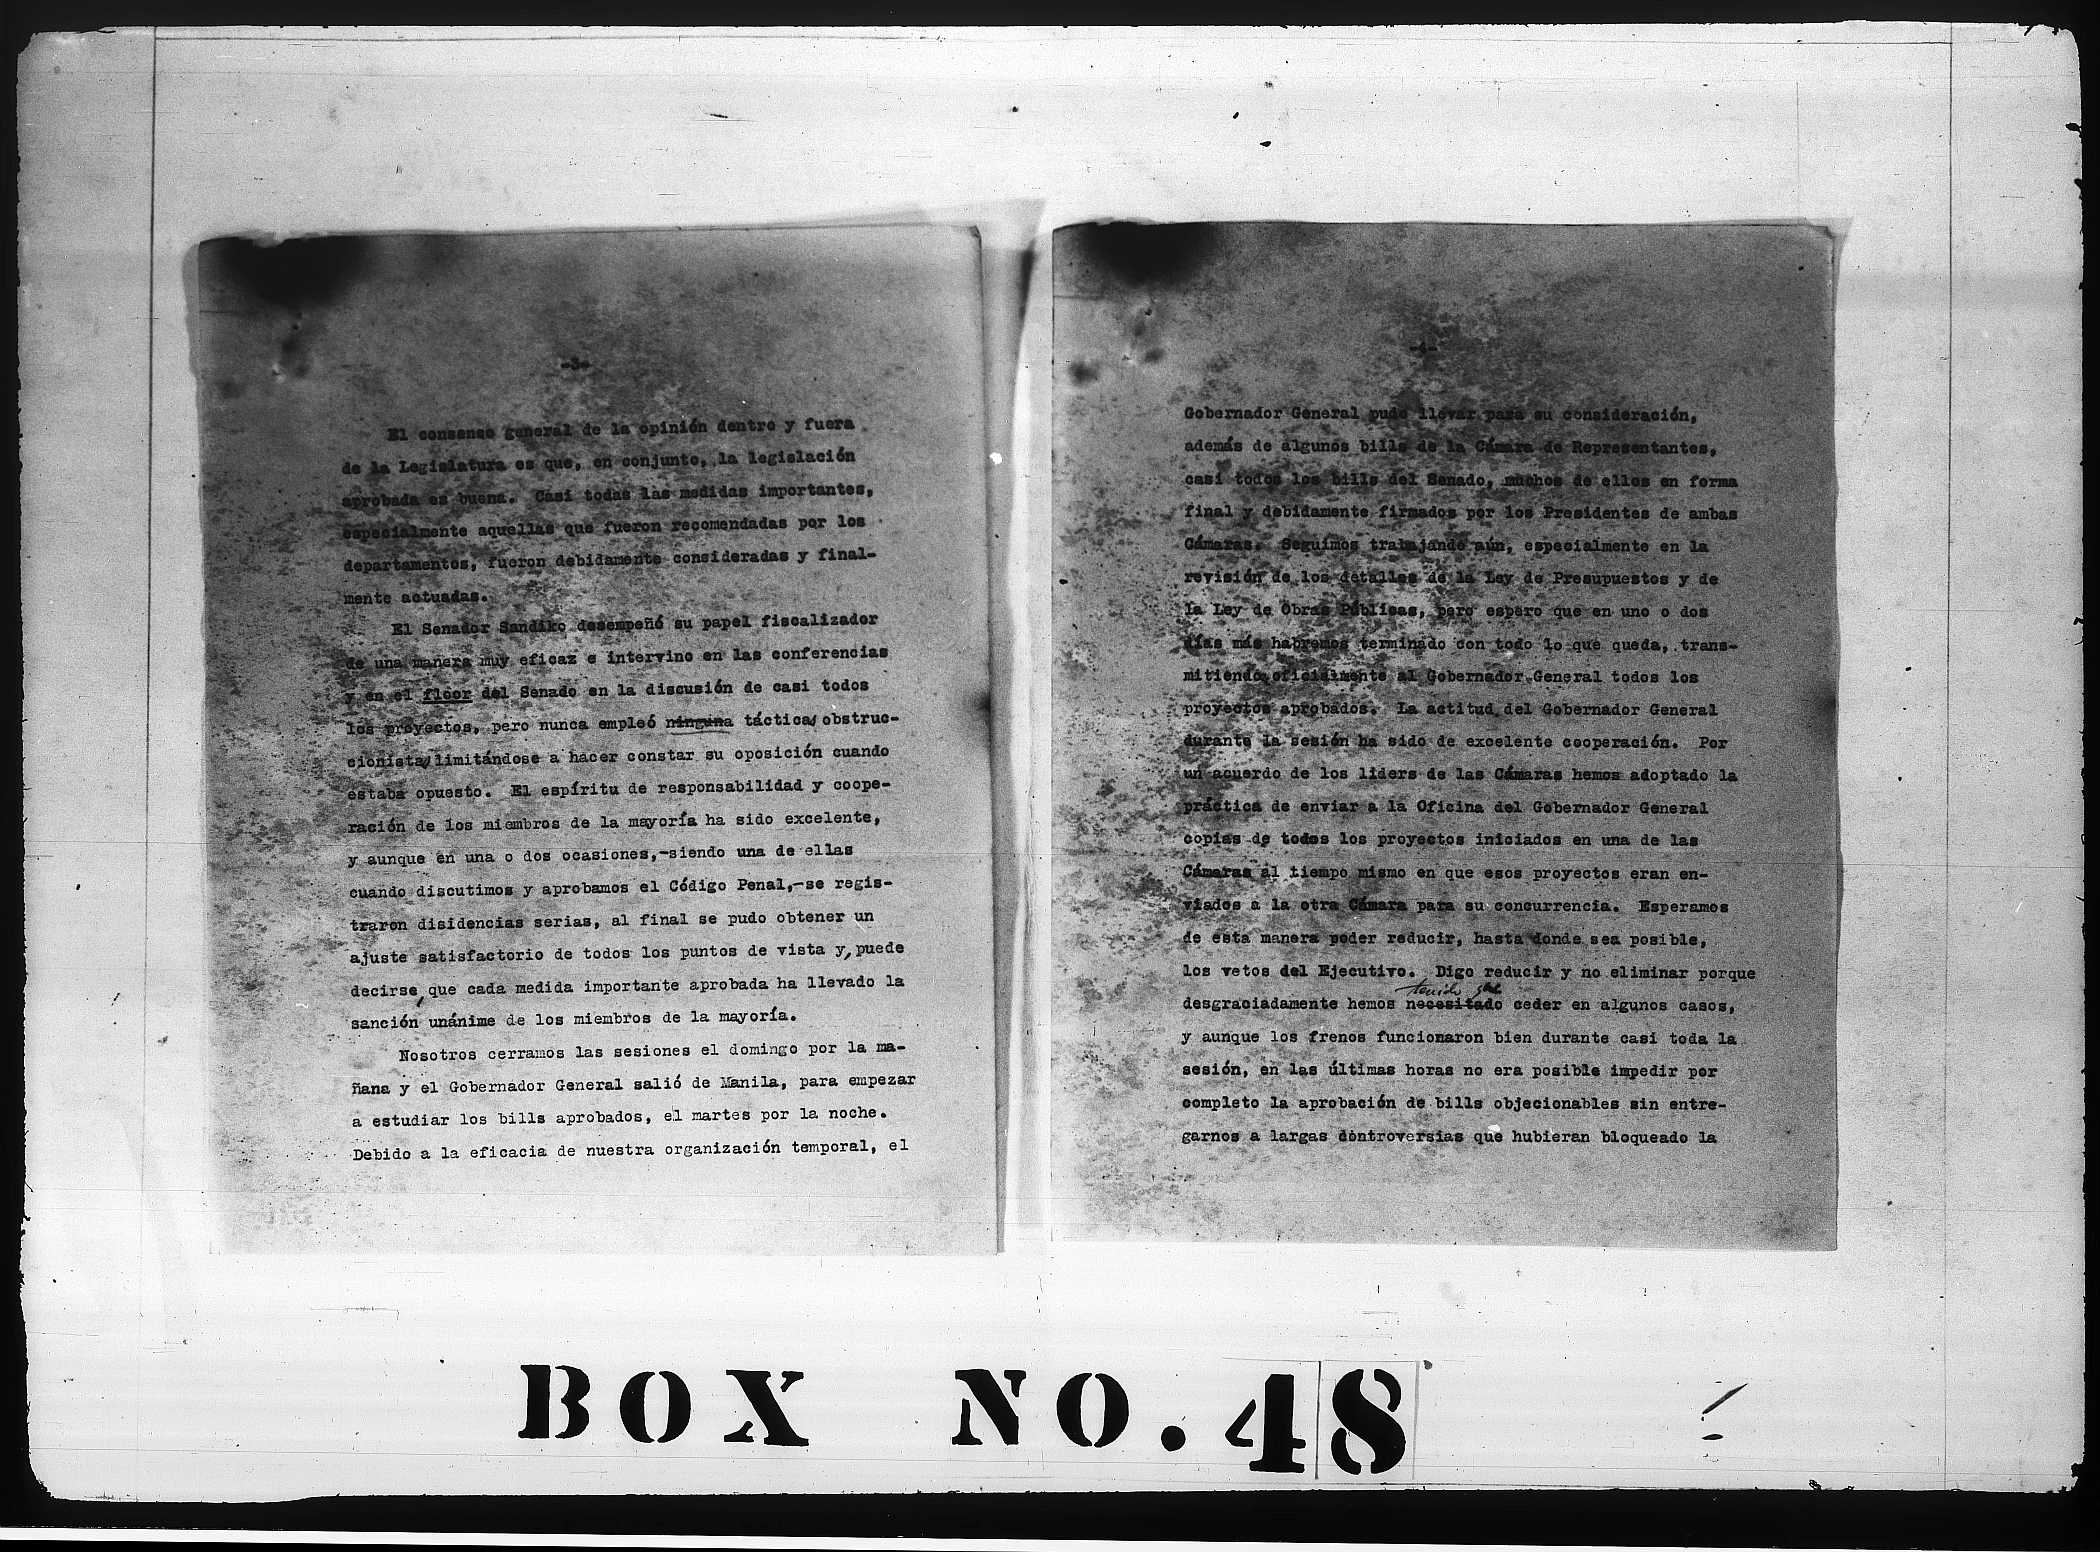 -3-
El consenso general de la opinión dentro y fuera
de la Legislatura es que, en conjunto, la legislación
aprobada es buena. Casi todas las medidas importantes,
especialmente aquellas que fueron recomendadas por los
departamentos, fueron debidamente consideradas y final-
mente actuadas.
El Senador Sandiko desempeñó su papel fiscalizador
de una manera muy eficaz e intervino en las conferencias
y en el floor del Senado en la discusión de casi todos
los proyectos, pero nunca empleó ninguna táctica obstruc-
cionista, limitándose a hacer constar su oposición cuando
estaba opuesto. El espíritu de responsabilidad y coope-
ración de los miembros de la mayoría ha sido excelente,
y aunque en una o dos ocasiones,-siendo una de ellas
cuando discutimos y aprobamos el Código Penal,-se regis-
traron disidencias serias, al final se pudo obtener un
ajuste satisfactorio de todos los puntos de vista y, puede
decirse, que cada medida importante aprobada ha llevado la
sanción unánime de los miembros de la mayoría.
Nosotros cerramos las sesiones el domingo por la ma-
ñana y el Gobernador General salió de Manila, para empezar
a estudiar los bills aprobados, el martes por la noche.
Debido a la eficacia de nuestra organización temporal, el
-4-
Gobernador General pudo llevar para su consideración,
además de algunos bills de la Cámara de Representantes,
casi todos los bills del Senado, muchos de ellos en forma
final y debidamente firmados por los Presidentes de ambas
Cámaras. Seguimos trabajando aún, especialmente en la
revisión de los detalles de la Ley de Presupuestos y de
la Ley de Obras Públicas, pero espero que en uno o dos
días más habremos terminado con todo lo que queda, trans-
mitiendo oficialmente al Gobernador General todos los
proyectos aprobados. La actitud del Gobernador General
durante la sesión ha sido de excelente cooperación. Por
un acuerdo de los liders de las Cámaras hemos adoptado la
práctica de enviar a la Oficina del Gobernador General
copias de todos los proyectos iniciados en una de las
Cámaras al tiempo mismo en que esos proyectos eran en-
viados a la otra Cámara para su concurrencia. Esperamos
de esta manera poder reducir, hasta donde sea posible,
los vetos del Ejecutivo. Digo reducir y no eliminar porque
tenido que
desgraciadamente hemos necesitado ceder en algunos casos,
y aunque los frenos funcionaron bien durante casi toda la
sesión, en las últimas horas no era posible impedir por
completo la aprobación de bills objecionables sin entre-
garnos a largas controversias que hubieran bloqueado la
BOX NO. 48